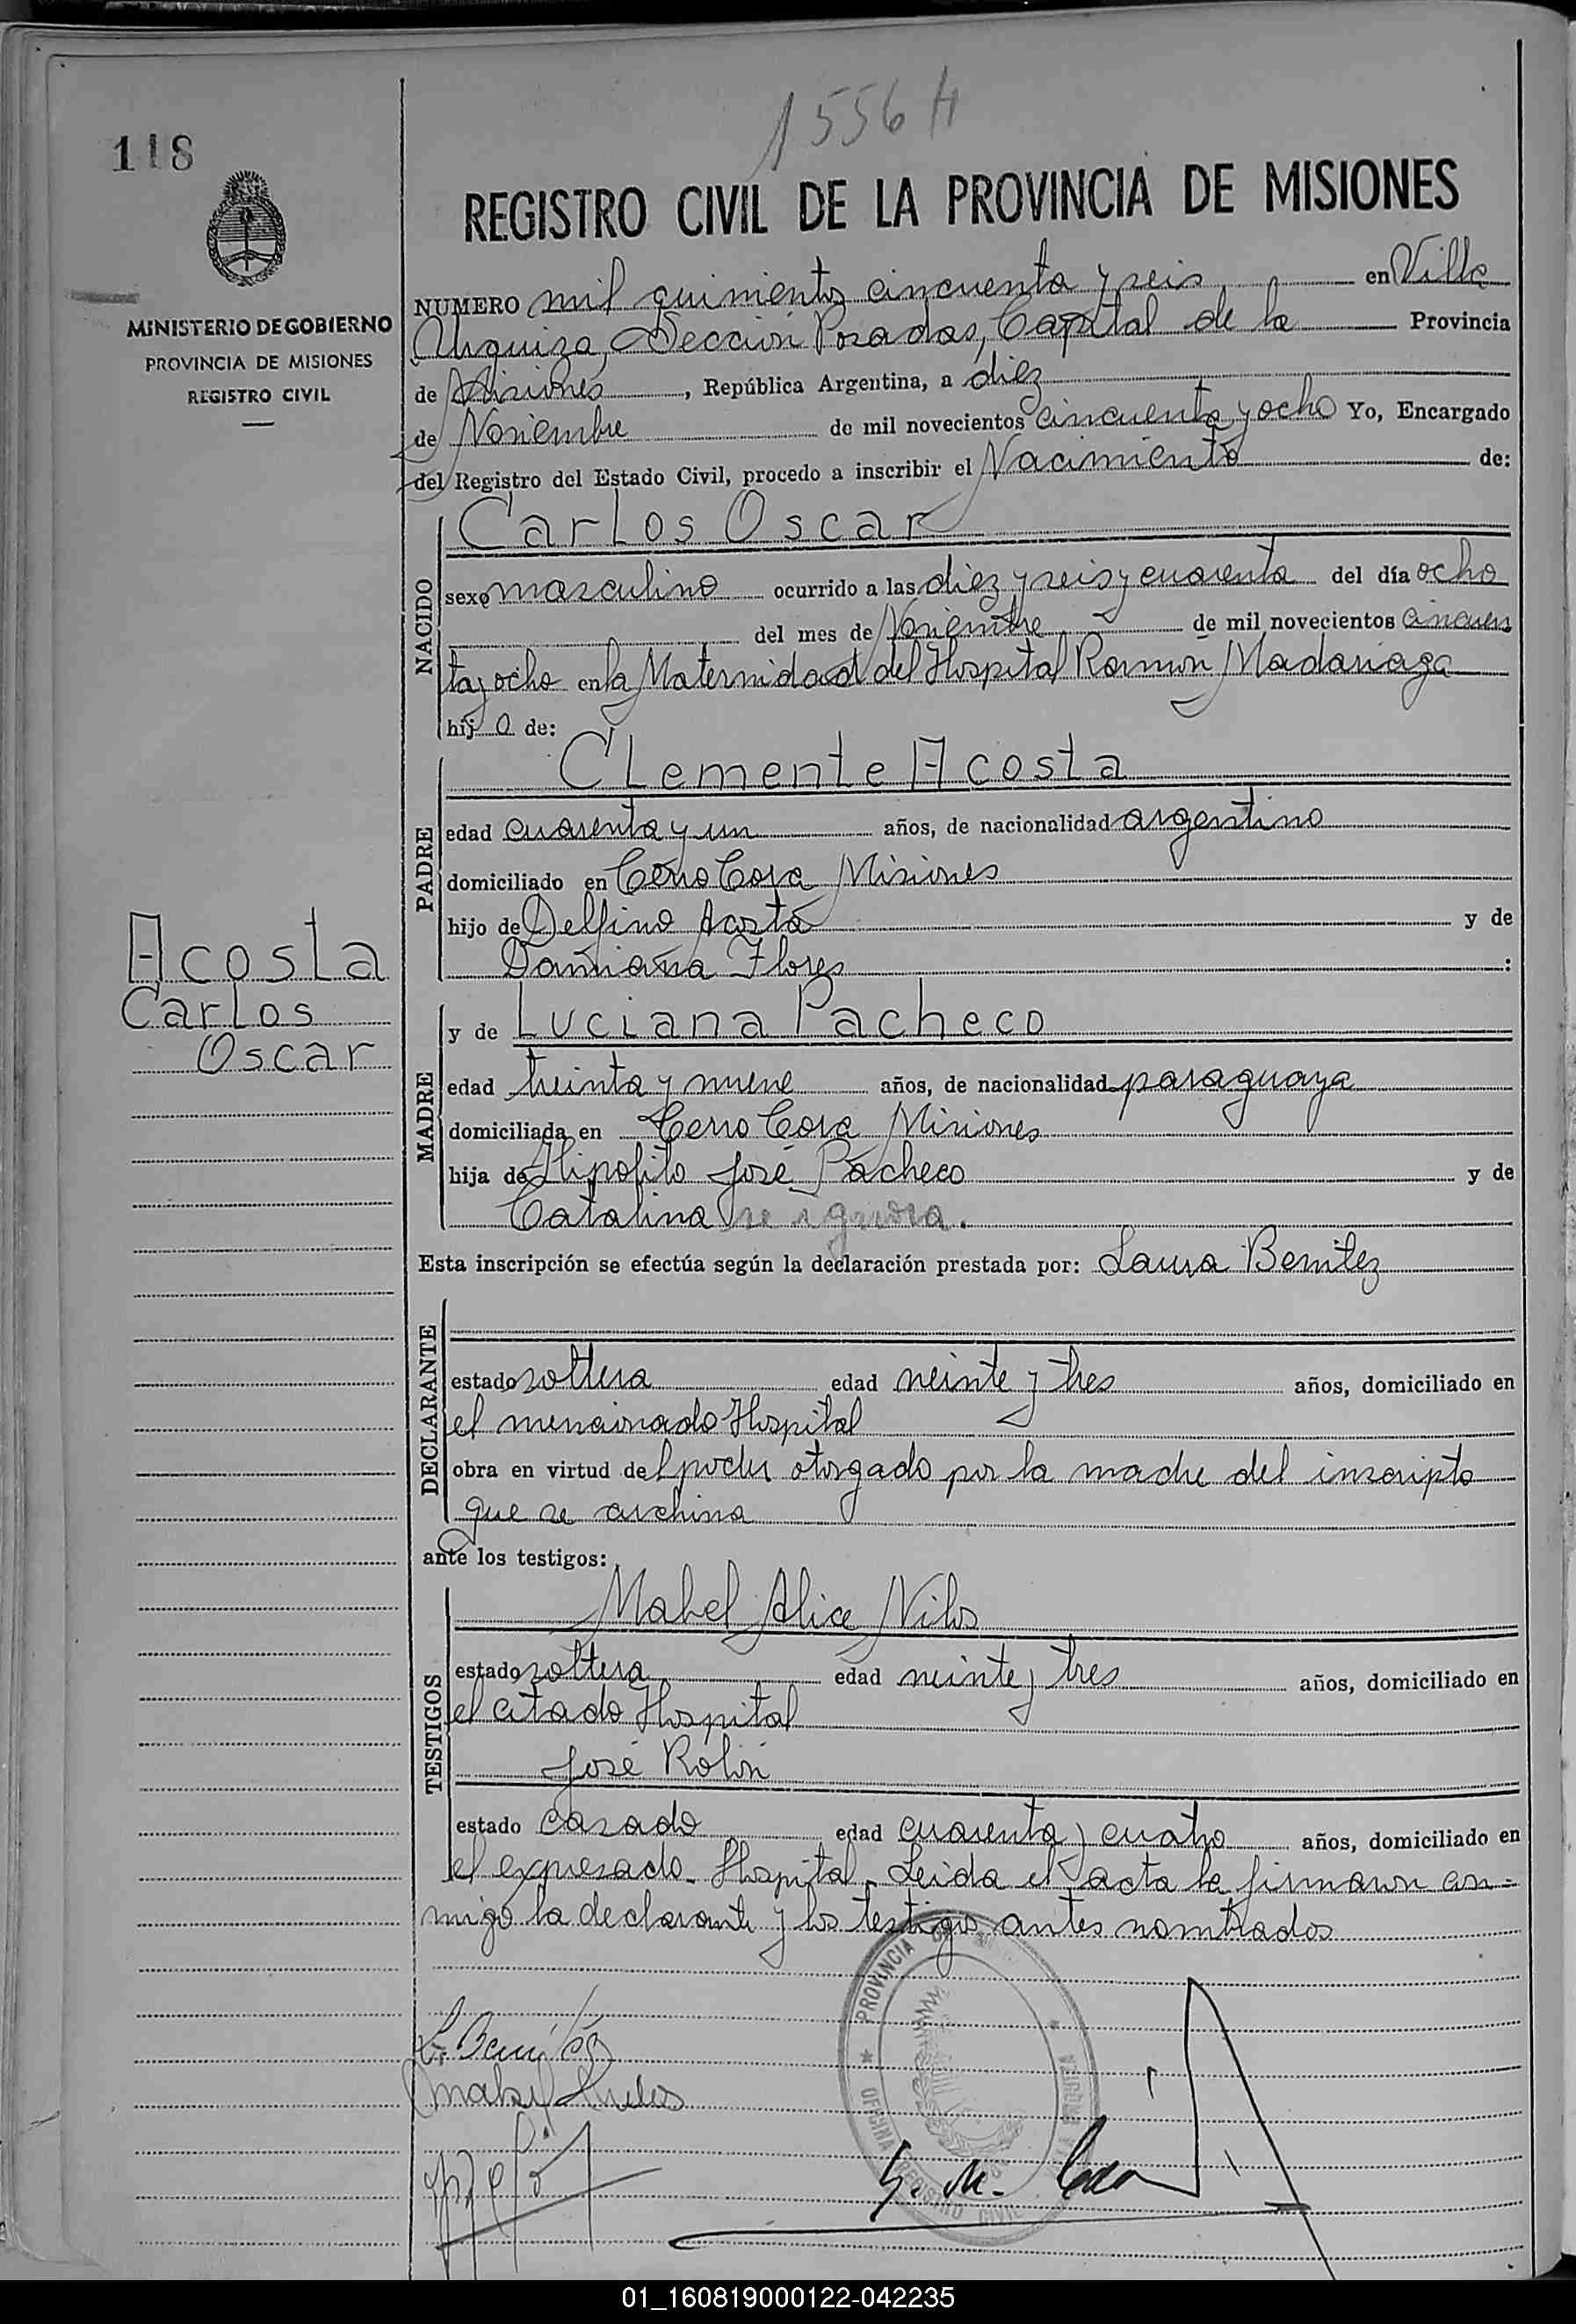 1556 H
118
REGISTRO CIVIL DE LA PROVINCIA DE MISIONES
MINISTERIO DE GOBIERNO
PROVINCIA DE MISIONES
REGISTRO CIVIL
NUMERO mil quinientos cincuenta y seis en Villa
Urquiza, Sección Posadas, Capital de la Provincia
de Misiones, República Argentina, a diez
de Noviembre de mil novecientos cincuenta y ocho Yo, Encargado
del Registro del Estado Civil, procedo a inscribir el Nacimiento de:
NACIDO
Carlos Oscar
sexo masculino ocurrido a las diez y seis y cuarenta del día ocho
del mes de Noviembre de mil novecientos cincuen
ta y ocho en la Maternidad del Hospital Ramon Madariaga
hijo de:
PADRE
Clemente Acosta
edad cuarenta y un años, de nacionalidad argentino
domiciliado en Cerro Cora Misiones
hijo de Delfino Acosta y de
Damiana Flores :
Acosta
Carlos
Oscar
MADRE
y de Luciana Pacheco
edad treinta y nueve años, de nacionalidad paraguaya
domiciliada en Cerro Cora Misiones
hija de Hipolito José Pacheco y de
Catalina se ignora.
Esta inscripción se efectúa según la declaración prestada por: Laura Benitez
DECLARANTE
estado soltera edad veinte y tres años, domiciliado en
el mencionado Hospital
obra en virtud del poder otorgado por la madre del inscripto
que se archiva
ante los testigos:
TESTIGOS
Mabel Alice Vilos
estado soltera edad veinte y tres años, domiciliado en
el citado Hospital
José Rolón
estado casado edad cuarenta y cuatro años, domiciliado en
el expresado Hospital. Leida el acta la firmaron con=
migo la declarante y los testigos antes nombrados
L. Benitez
PROVINCIA DE
OFICINA REGISTRO CIVIL
01_160819000122-042235